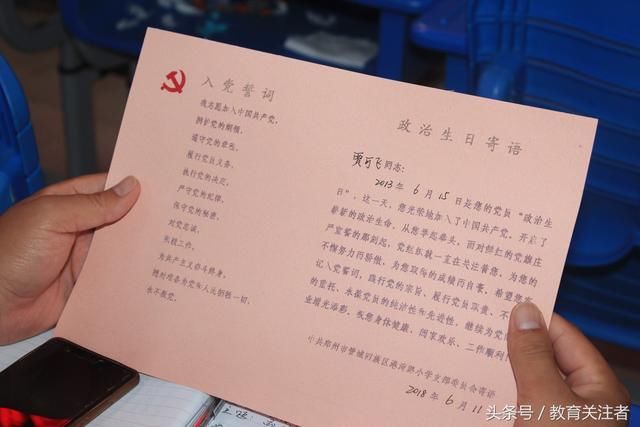 入党誓词
我志愿加入中国共产党，
拥护党的纲领，
遵守党的章程，
履行党员义务，
执行党的决定，
严守党的纪律，
保守党的秘密，
对党忠诚，
积极工作，
为共产主义奋斗终身，
随时准备为党和人民牺牲一切，
永不叛党。
政治生日寄语
贾可飞同志：
2013年6月15日是您的党员“政治生
日”，这一天，您光荣地加入了中国共产党，开启了
崭新的政治生命，从您举起拳头，面对鲜红的党旗庄
严宣誓的那刻起，党组织就一直在关注着您，为您的
不懈努力而骄傲，为您取得的成绩而自豪。希望您
记入党誓词，践行党的宗旨、履行党员职责、不
的重托、永葆党员的纯洁性和先进性，继续为党
业增光添彩。祝您身体健康、阖家欢乐、工作顺利
中共郑州市管城回族区港湾路小学支部委员会寄语
2018年6月11
头条号／教育关注者